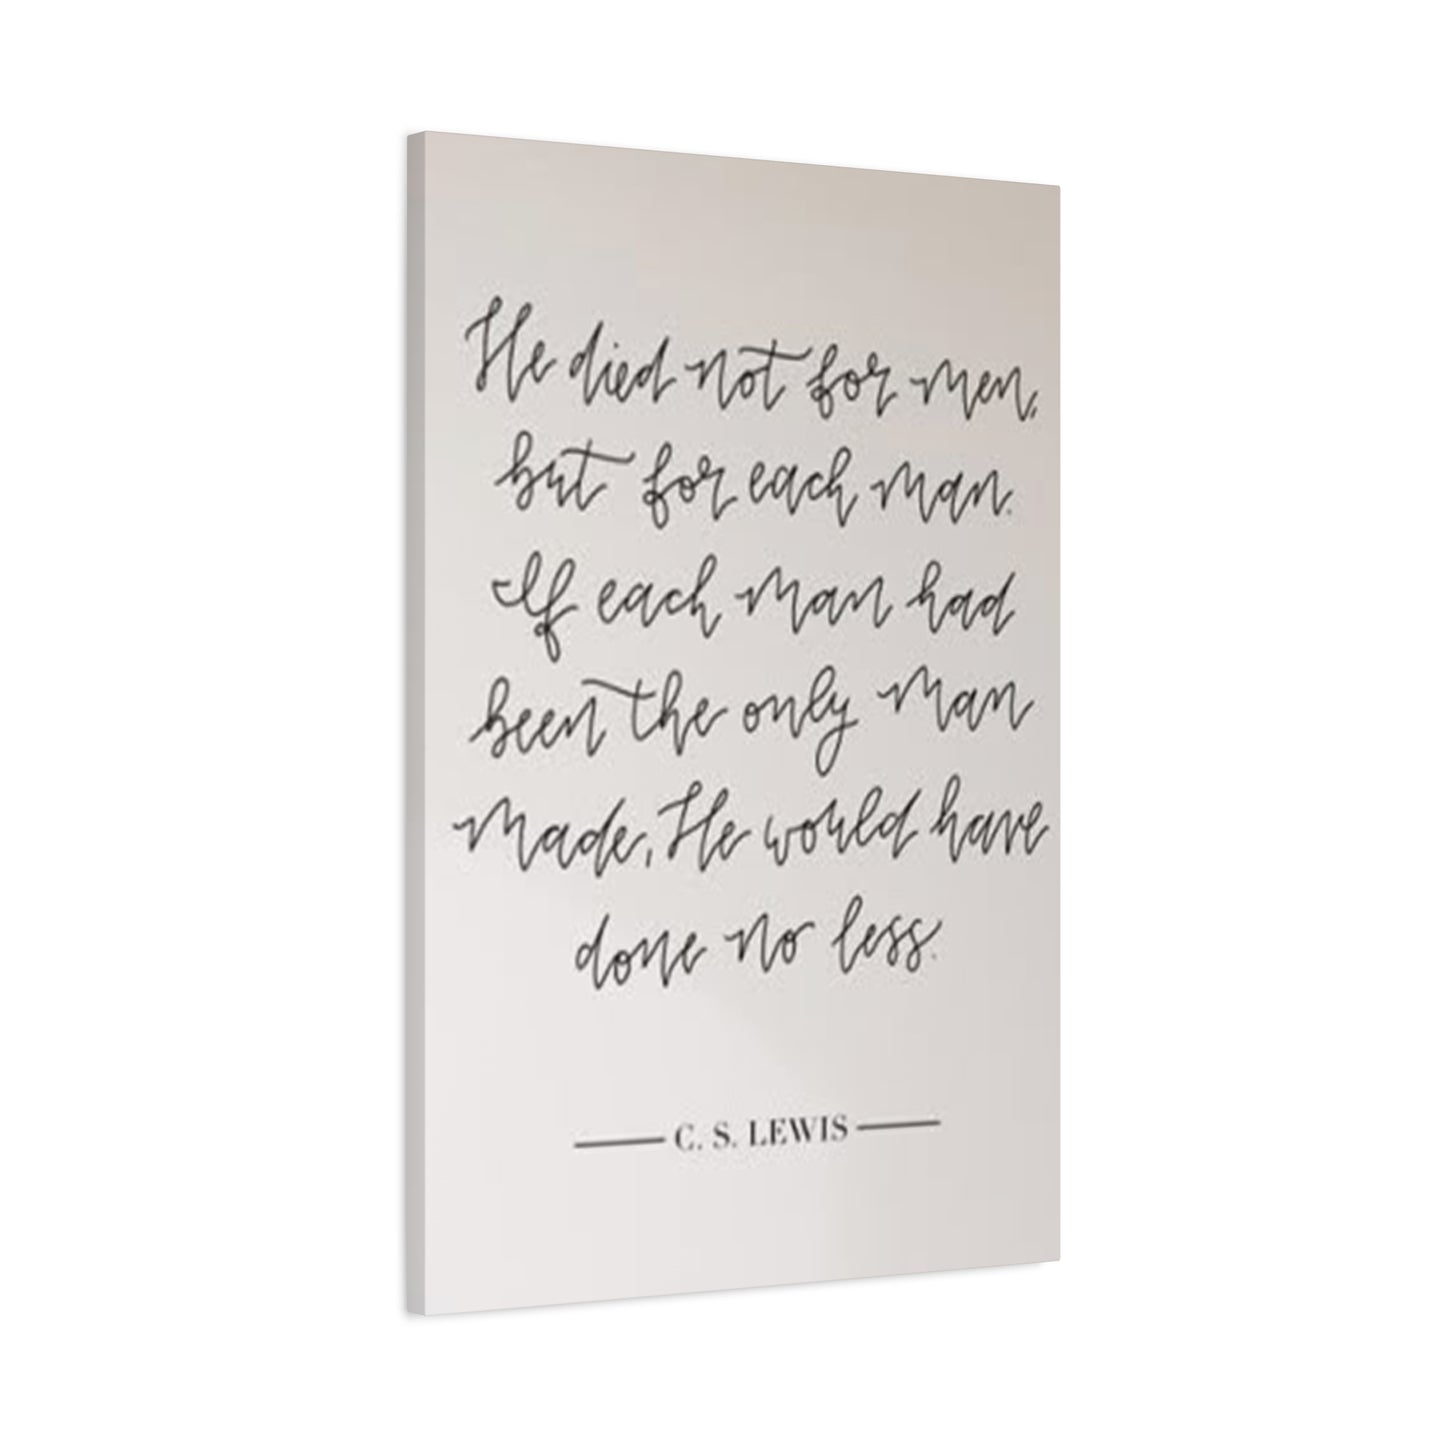 He died not for men,
but for each man.
If each man had
been the only man
made, He would have
done no less.
C. S. LEWIS